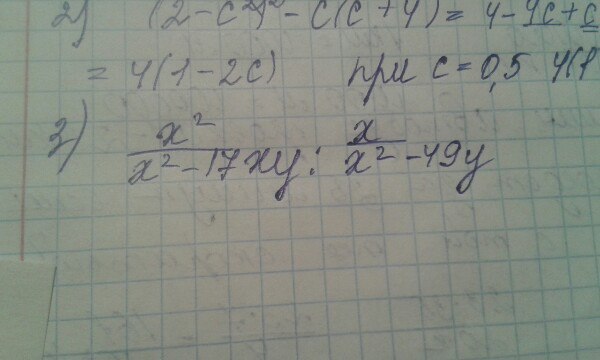 2) (2-c²)² - c(c+4) = 4-9c+c
= 4(1-2c) при c=0,5 4(1
3) x²/(x²-17xy) : x/(x²-49y)